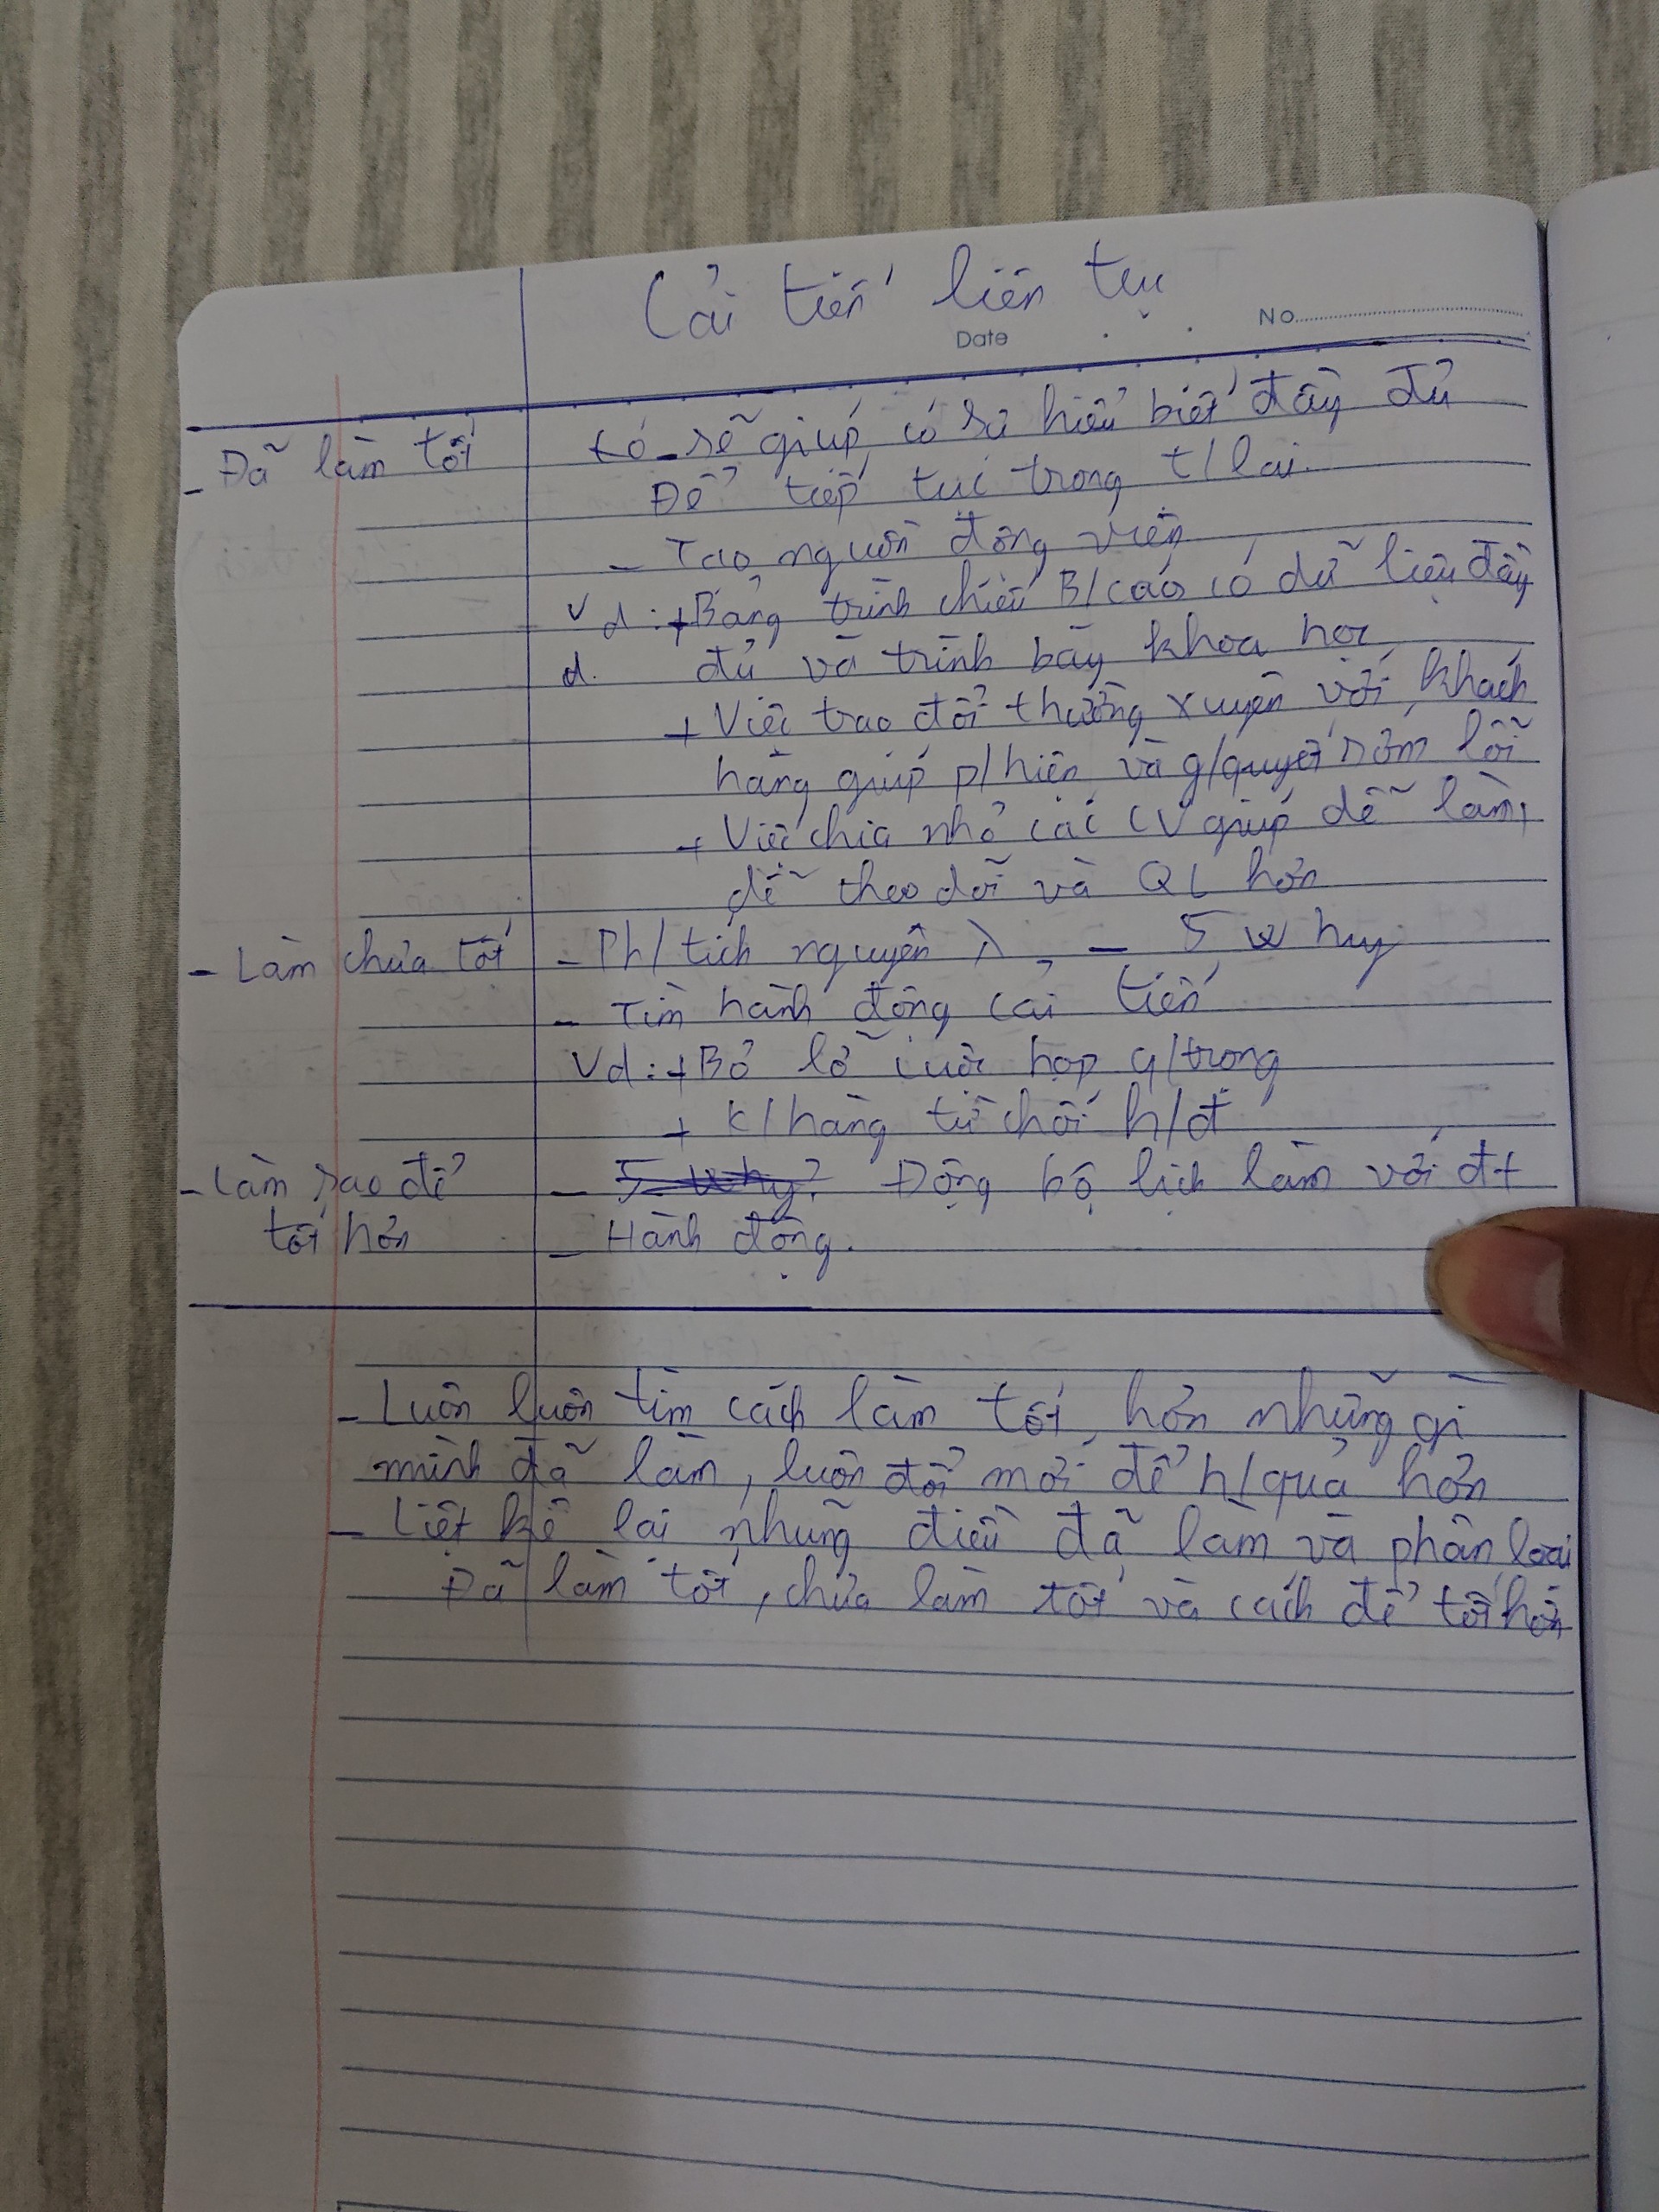 Cải tiến liên tục
Date No
- Đã làm tốt
có sẽ giúp có sự hiểu biết đầy đủ
Để tiếp tục trong t/lai.
- Tạo nguồn động viên
Vd: +Bảng trình chiếu B/cáo có dữ liệu đầy
d. đủ và trình bày khoa học
+ Việc trao đổi thường xuyên với khách
hàng giúp p/hiện và g/quyết sớm lỗi
+ Việc chia nhỏ các CV giúp dễ làm,
dễ theo dõi và QL hơn
- Làm chưa tốt
- Ph/tích nguyên λ, - 5 why
- Tìm hành động cải tiến
Vd: +Bỏ lỡ cuộc họp q/trọng
+ K/hàng từ chối h/đ
- Làm sao để
tốt hơn
- 5 why? Động bộ lịch làm với đt
- Hành động.
- Luôn luôn tìm cách làm tốt hơn những gì
mình đã làm, luôn đổi mới để h/quả hơn
- Liệt kê lại những điều đã làm và phân loại
Đã làm tốt, chưa làm tốt và cách để tốt hơn